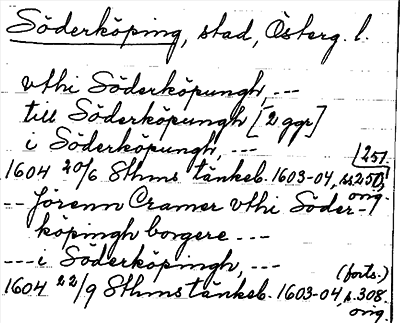 Söderköping, stad, Österg. l.
vthi Söderköpungh, ---
till Söderköpungh [2 ggr]
i Söderköpungh, ---
1604 20/6 Sthms tänkeb. 1603-04, ss. 250, 251 orig.
-- Jörenn Cramer vthi Söder-
köpingh borgere ---
--- i Söderköpingh, --- (forts.)
1604 22/9 Sthms tänkeb. 1603-04, s. 308. orig.